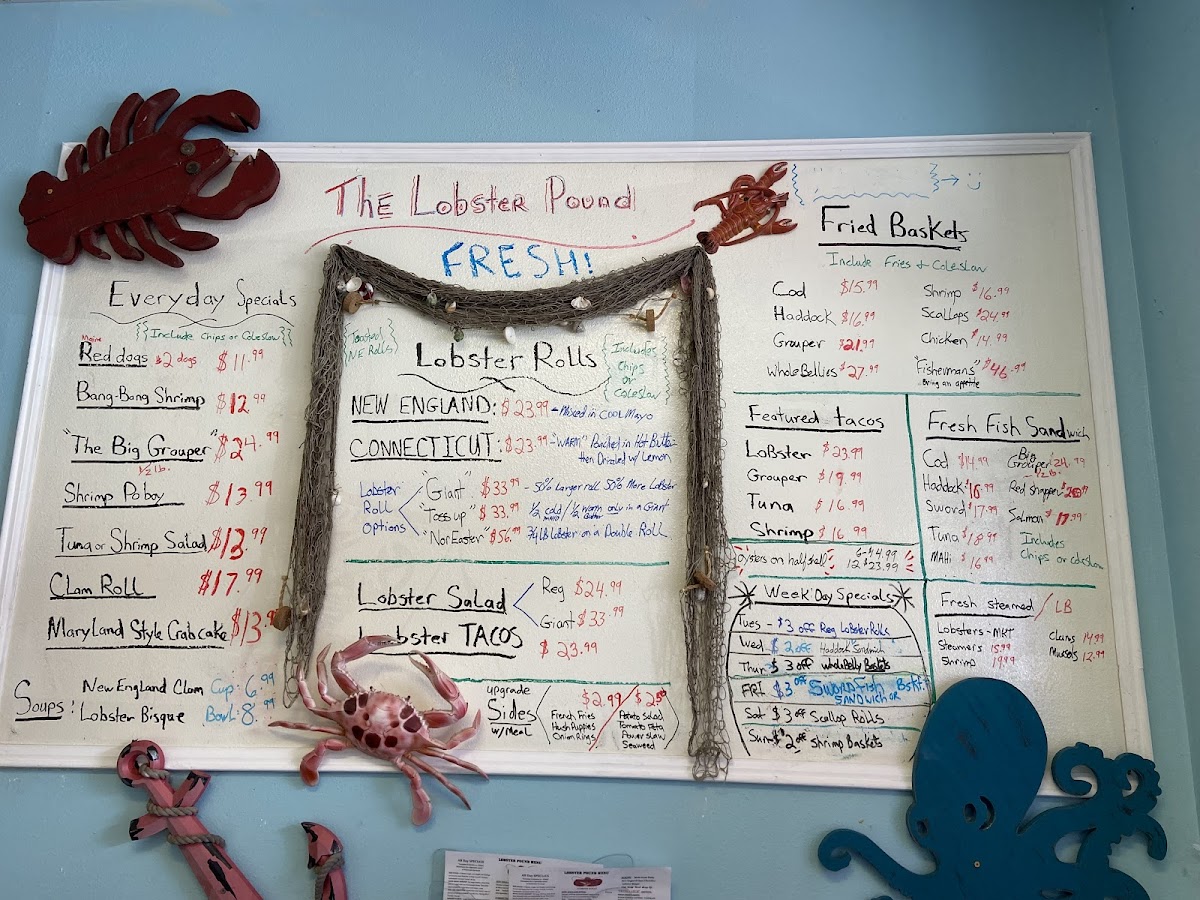 The Lobster Pound
FRESH!
Everyday Specials
Include Chips or Coleslaw
Maine
Red dogs 2 dogs $11.99
Bang-Bang Shrimp $12.99
"The Big Grouper" $24.99
1/2 lb.
Shrimp Poboy $13.99
Tuna or Shrimp Salad $13.99
Clam Roll $17.99
Maryland Style Crabcake $13.99
Soups: New England Clam Cup: 6.99
Lobster Bisque Bowl: 8.99
Toasted
NE Rolls
Lobster Rolls
Includes
Chips
or
Coleslaw
NEW ENGLAND: $23.99 - Mixed in COOL Mayo
CONNECTICUT: $23.99 - "WARM" Packed in Hot Butter
then Drizzled w/ Lemon
Lobster
Roll
Options
"Giant" $33.99 - 50% Larger roll 50% More Lobster
"Toss up" $33.99 1/2 cold / 1/2 warm only in a Giant
Nor Easter $56.99 3/4 LB Lobster on a Double Roll
Lobster Salad Reg $24.99
Giant $33.99
Lobster TACOS $23.99
upgrade
Sides
w/ Meal
$2.99
French Fries
Hush Puppies
Onion Rings
Potato Salad
Tomato Feta
Power slaw
Seaweed
Fried Baskets
Include Fries & Coleslaw
Cod $15.99
Haddock $16.99
Grouper $21.99
Whole Bellies $27.99
Shrimp $16.99
Scallops $24.99
Chicken $14.99
"Fishermans" $46.99
Bring an appetite
Featured tacos
Lobster $23.99
Grouper $19.99
Tuna $16.99
Shrimp $16.99
Oysters on half shell 6-14.99
12 $23.99
Fresh Fish Sandwich
Cod $14.99
Haddock $16.99
Sword $17.99
Tuna $18.99
MAHi $16.99
Big
Grouper $24.99
1/2 lb.
Red snapper
Salmon $17.99
Includes
Chips or coleslaw
Week Day Specials
Tues - $3 off Reg Lobster Rolls
Wed $2 off Haddock Sandwich
Thur $3 off whole Belly Baskets
FRI $3 off SWORDFISH Bskt.
SANDWICH OR
Sat - $3 off Scallop Rolls
Sun - $2 off Shrimp Baskets
Fresh steamed / LB
Lobsters - MKT
Steamers 15.99
Shrimp 19.99
Clams 14.99
Mussels 12.99
LOBSTER POUND MENU
LOBSTER POUND MENU